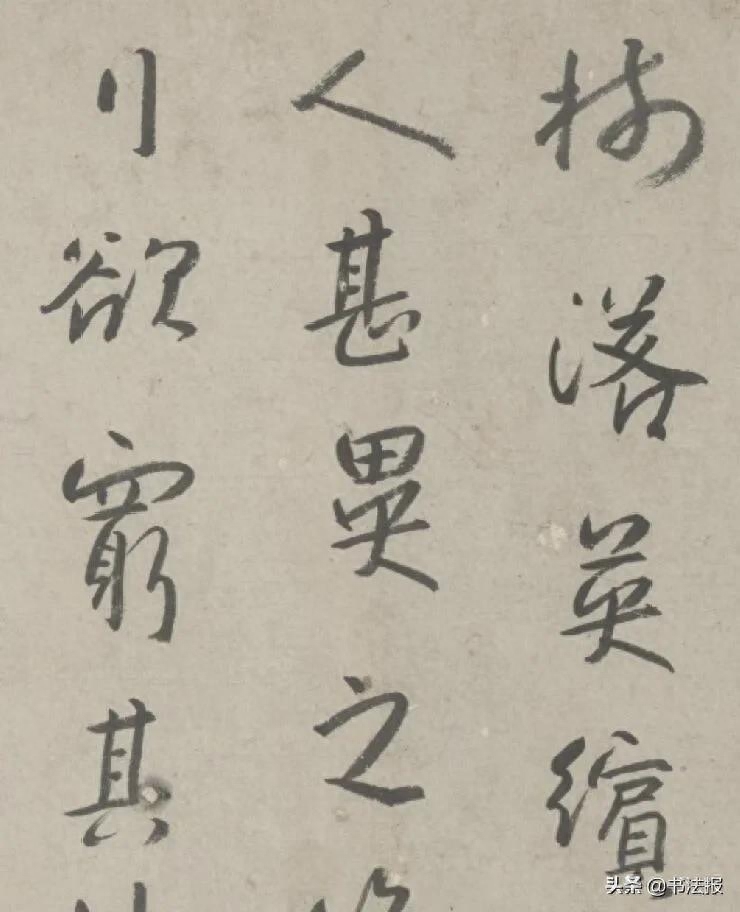 落英繽
人甚異之
行欲窮其
头条 @书法报